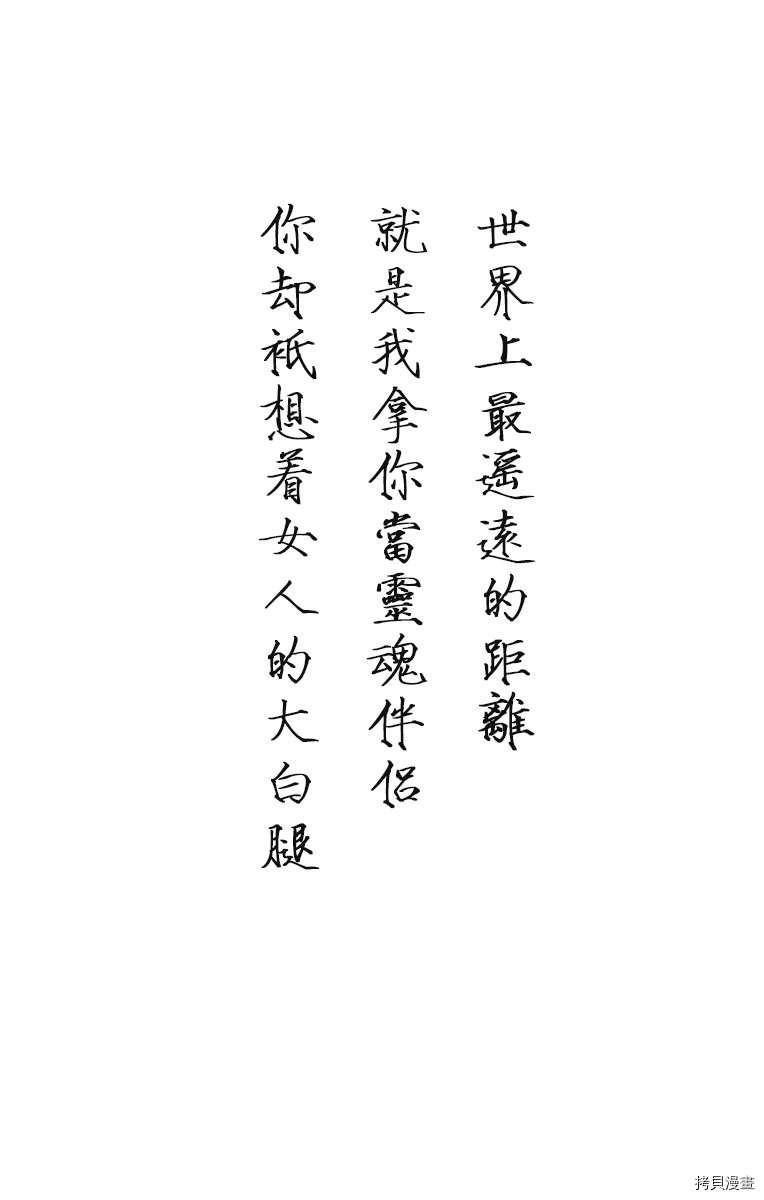 世界上最遥遠的距離
就是我拿你當靈魂伴侶
你却衹想着女人的大白腿
拷貝漫畫